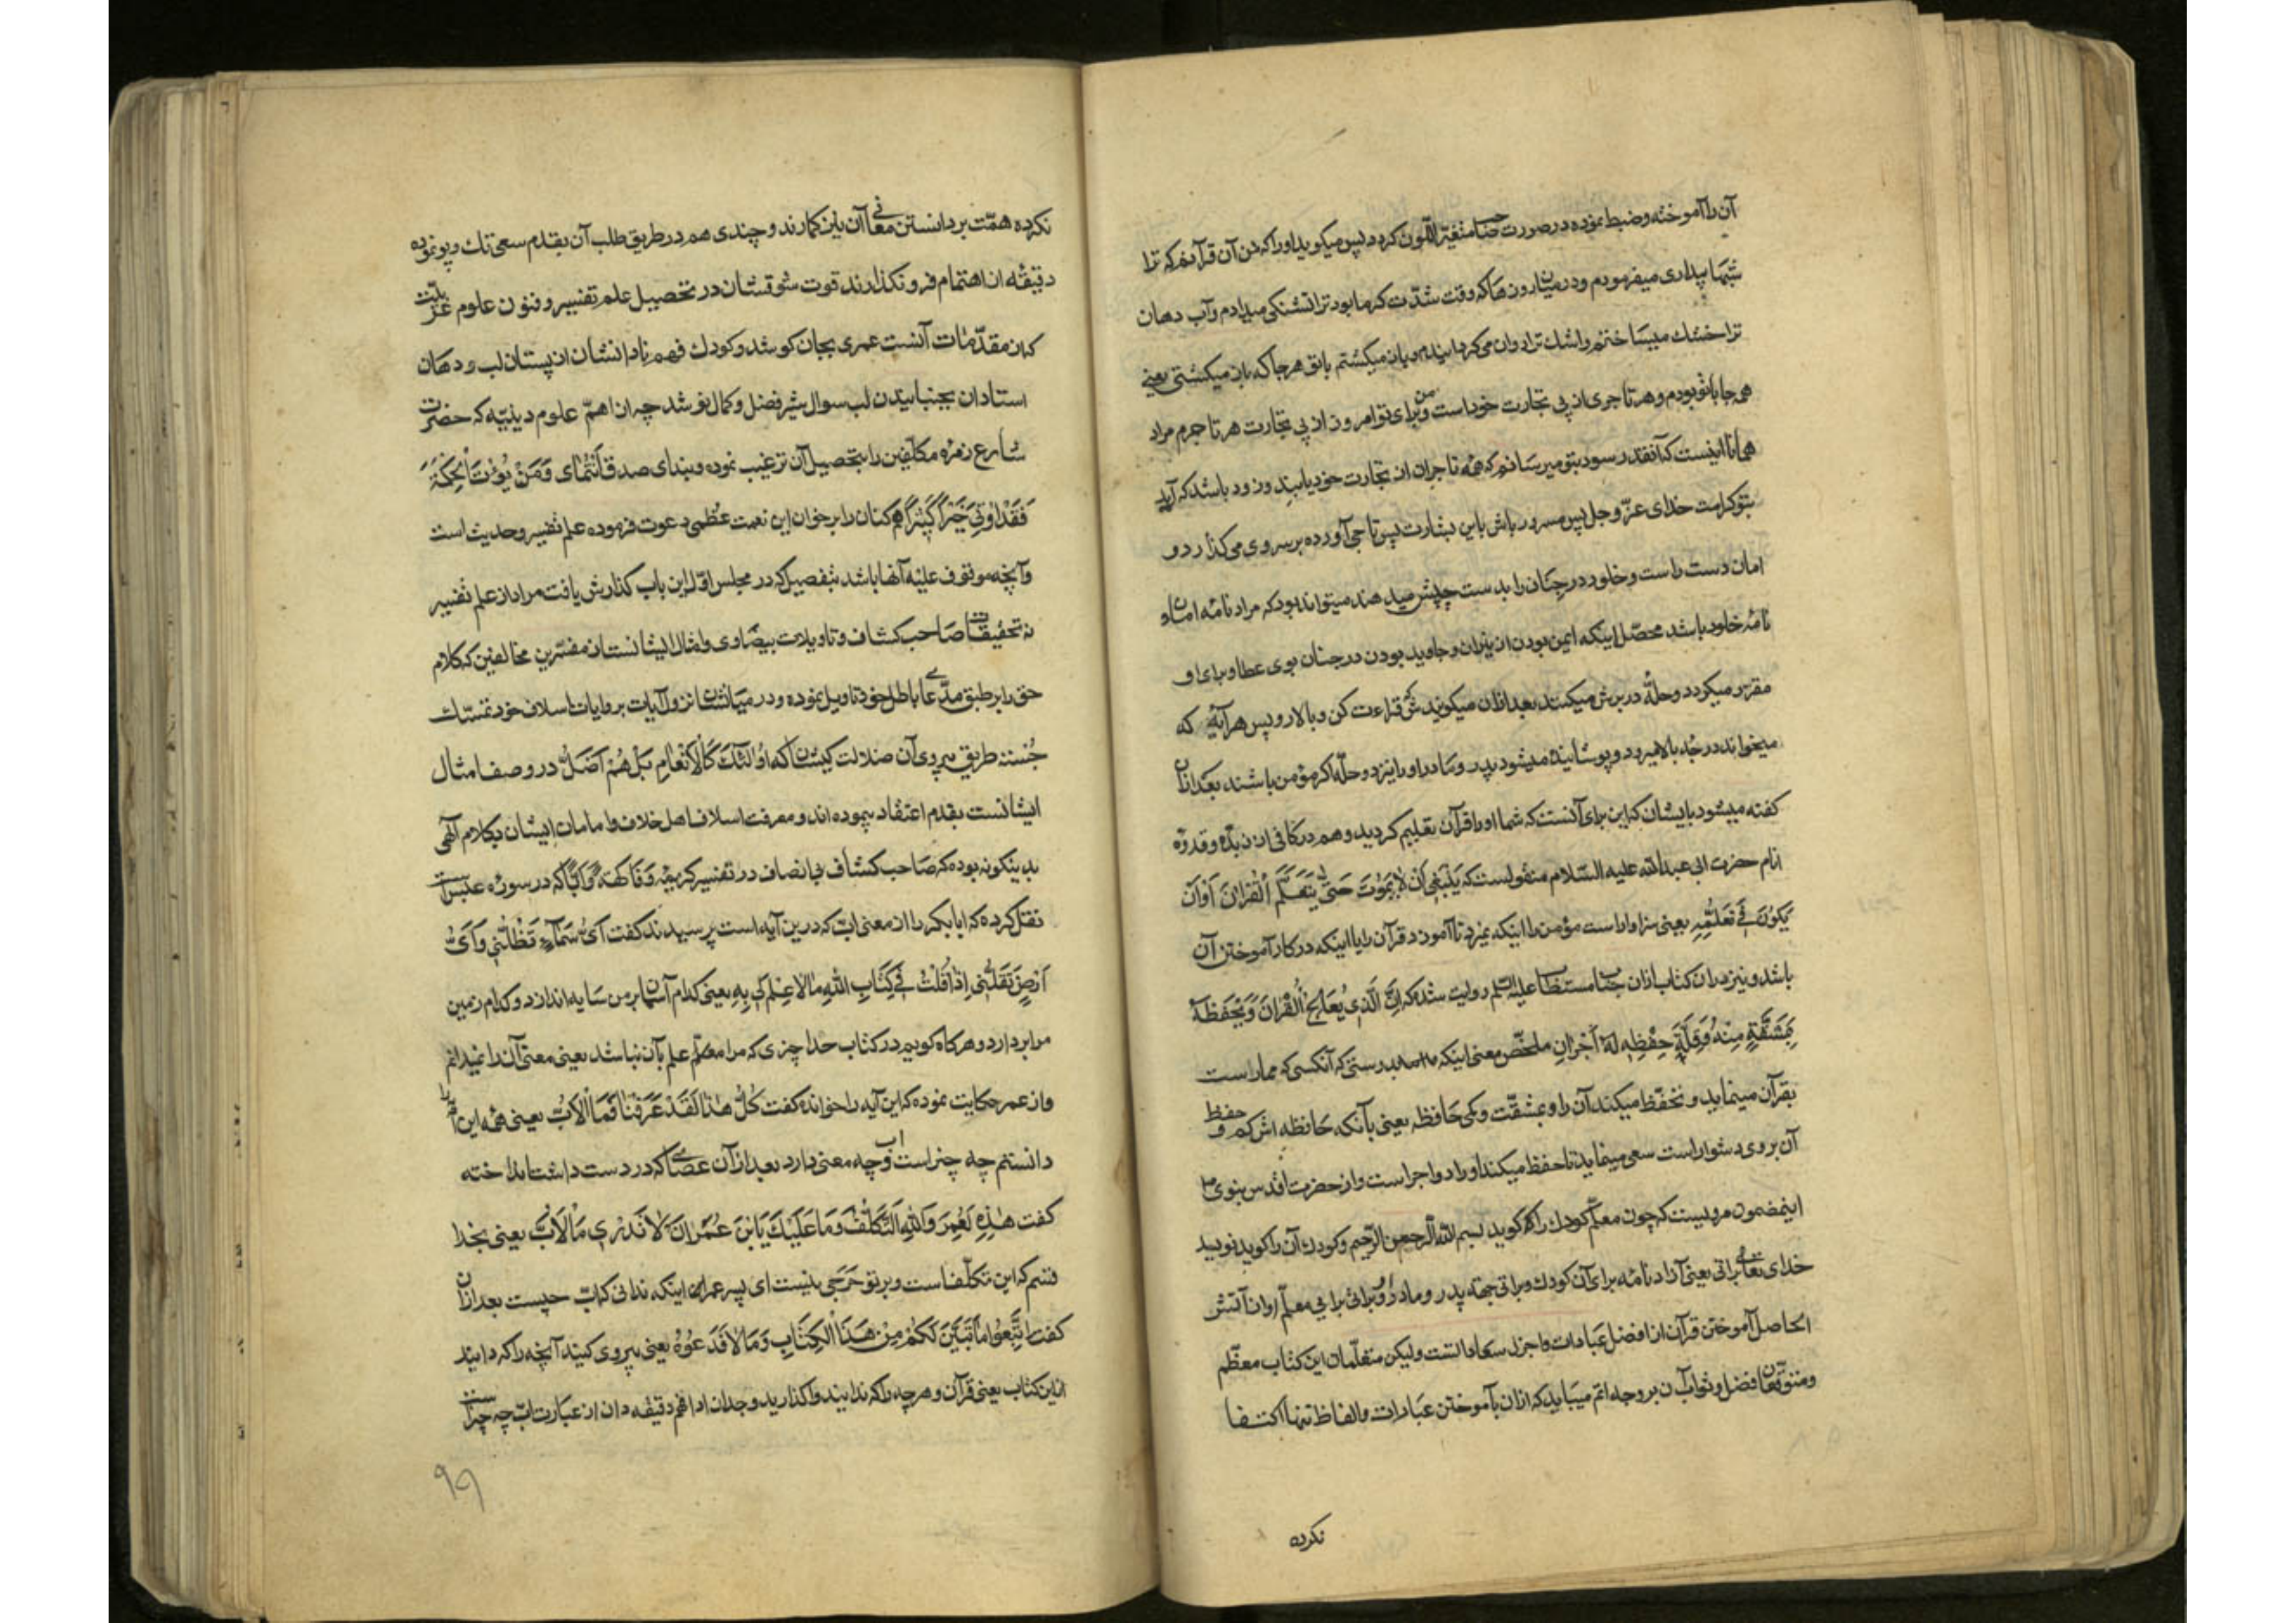 آن را آموخته و ضبط نموده در صورت جوان متغیر اللون کردد پس میکوید او را که من آن قرآنم که ترا
شبها بیداری میفرمودم و در میان روزها که وقت شدّت کرما بود ترا تشنکی میدادم و آب دهان
ترا خشك میساختم و اشك ترا روان می کردانیدم و بازمیکشتم با تو هر جا که بازمیکشتی یعنی
همه جا با تو بودم و هر تاجری از پی تجارت خود است و من برای تو امروز از پی تجارت هر تاجرم مراد
همانا اینست که آنقدر سود بتو میرسانم که همه تاجران از تجارت خود یابند و زود باشد که آید
بتو کرامت خدای عزّ و جل پس مسرور باش باین بشارت پس تاجی آورده بر سر وی می کذارد و
امان دست راست و خلود در جنان را بدست چپش میدهند میتواند بود که مراد نامه امان و
نامه خلود باشد محصّل اینکه ایمن بودن از نیران و جاوید بودن در جنان بوی عطا و برای او
مقرّر میکردد و دو حلّه در برش میکنند بعد ازان میکویندش که قراءت کن و بالا رو پس هر آیهٔ که
میخواند درجه بالا میرود و پوشانیده میشود پدر و مادر او را نیز دو حلّه اکر مؤمن باشند بعد ازان
کفته میشود بایشان که این برای آنست که شما او را قرآن تعلیم کردید و هم در کافی از زبدهٔ و قدوهٔ
انام حضرت ابی عبدالله علیه السّلام منقولست که یَنْبَغِی لِلْمُؤْمِنِ اَنْ لا یَمُوتَ حَتّی یَتَعَلَّمَ الْقُرْانَ اَوْ اَنْ
یَکُونَ فی تَعَلُّمِهِ یعنی سزاوار است مؤمن را اینکه نمیرد تا آموزد قرآن را یا اینکه در کار آموختن آن
باشد و نیز در ان کتاب ازان جناب مستطاب علیه السّلم روایت شده که اِنَّ الَّذی یُعالِجُ الْقُرْانَ وَ یَحْفَظُهُ
بِمَشَقَّةٍ مِنْهُ وَ قِلَّةِ حِفْظِهِ لَهُ اَجْرانِ ملخّص معنی اینکه بدرستی که آنکسی که ممارست
بقرآن مینماید و تحفّظ میکند آن را و بمشقّت و کمی حافظه یعنی بآنکه حافظه اش کم و حفظ
آن بر وی دشوار است سعی مینماید تا حفظ میکند او را دو اجر است و از حضرت اقدس نبوی ص
اینمضمون مرویست که چون معلّم کودك را کوید کو بسم الله الرّحمن الرّحیم و کودك آن را کوید نویسد
خدای تعالی براتی یعنی آزاد نامه برای آن کودك و براتی جهة پدر و مادر او و براتی برای معلّم او از آتش
الحاصل آموختن قرآن از افضل عبادات و اجزل سعاداتست ولیکن متعلّمان این کتاب معظّم
و متوقّعان فضل و ثواب آن بر وجه اتم میباید که ازان بآموختن عبارات و الفاظ تنها اکتفا
نکرده
نکرده همّت بر دانستن معانی آن نیز کمارند و چندی هم در طریق طلب آن بقدم سعی تك و پو نموده
دقیقهٔ از اهتمام فرو نکذارند قوت شوقشان در تحصیل علم تفسیر و فنون علوم عربیّت
که از مقدّمات آنست عمری بجان کوشد و کودك فهم نادانشان از پستان لب و دهان
استادان بجنبانیدن لب سوال شیر فضل و کمال نوشد چه از اهمّ علوم دینیّه که حضرت
شارع زمرهٔ مکلّفین را بتحصیل آن ترغیب نموده و بندای صدق انتمای وَمَنْ یُؤْتَ الْحِکْمَةَ
فَقَدْ اُوتِیَ خَیْرًا کَثِیرًا همکنان را بر خوان این نعمت عظمی دعوت فرموده علم تفسیر و حدیث است
و آنچه موقوف علیه آنها باشد بتفصیلی که در مجلس اوّل این باب کذارش یافت مراد از علم تفسیر
نه تحقیقات صاحب کشاف و تاویلات بیضاوی و امثال ایشانست از مفسّرین مخالفین که کلام
حق را بر طبق مدّعای باطل خود تاویل نموده و در میان شان نزول آیات بروایات اسلاف خود تمسّك
جُسته طریق پیروی آن ضلالت کیشان که اُولئِكَ کَالْاَنْعامِ بَلْ هُمْ اَضَلُّ در وصف امثال
ایشانست بقدم اعتقاد پیموده اند و معرفت اسلاف اهل خلاف و امامان ایشان بکلام آلهی
بدینکونه بوده که صاحب کشاف بی انصاف در تفسیر کریمهٔ وَ فاکِهَةً وَ اَبًّا که در سورهٔ عبس است
نقل کرده که ابابکر را از معنی ابّ که درین آیه است پرسیدند کفت اَیُّ سَمآءٍ تُظِلُّنی وَ اَیُّ
اَرْضٍ تُقِلُّنی اِذا قُلْتُ فی کِتابِ اللهِ مالا عِلْمَ لی بِهِ یعنی کدام آسمان بر من سایه اندازد و کدام زمین
مرا بردارد و هرکاه کویم در کتاب خدا چیزی که مرا علم بآن نباشد یعنی معنی آن را ندانم
و از عمر حکایت نموده که این آیه را خوانده کفت کُلُّ هذا قَدْ عَرَفْنا فَمَا الْاَبُّ یعنی همه این را
دانستم چه چیز است اب و چه معنی دارد بعد ازآن عصائی که در دست داشت انداخته
کفت هٰذِهِ لَعَمْرُ وَاللهِ التَّکَلُّفُ وَ ما عَلَیْكَ یَا بْنَ عُمَرانَ لا تَدْری مَا الْاَبُّ یعنی بخدا
قسم که این تکلّف است و بر تو حَرَجی نیست ای پسر عمران اینکه ندانی که ابّ چیست بعد ازان
کفت اِتَّبِعُوا ما تَبَیَّنَ لَکُمْ مِنْ هَذَا الْکِتابِ وَ ما لا فَدَعُوهُ یعنی پیروی کنید آنچه را که دانید
ازاین کتاب یعنی قرآن و هر چه را که ندانید واکذارید وجدان ادا فهم دقیقه دان از عبارت ابّ چه چیز است